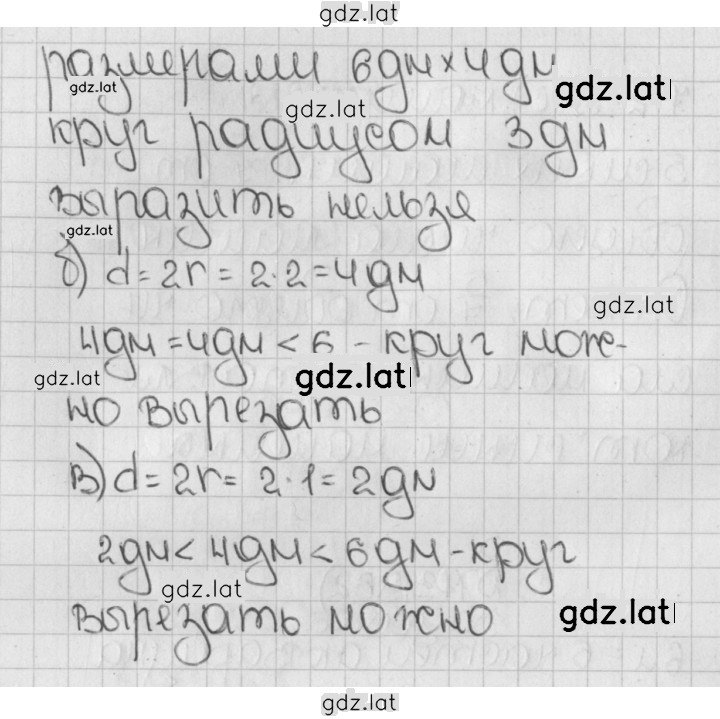 gdz.lat
размерами 6дм×4дм
gdz.lat
gdz.lat
gdz.lat
круг радиусом 3дм
выразить нельзя
gdz.lat
б) d=2r=2·2=4дм
gdz.lat
4дм=4дм<6 - круг мож-
gdz.lat
gdz.lat
но вырезать
в) d=2r=2·1=2дм
2дм<4дм<6дм-круг
gdz.lat
gdz.lat
вырезать можно
gdz.lat